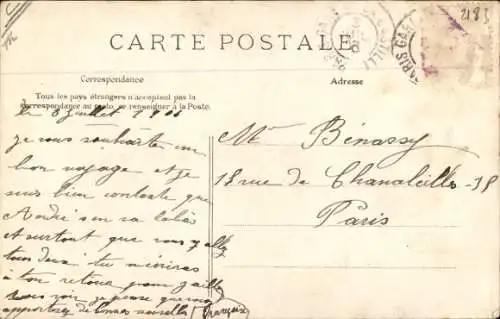 2183
CARTE POSTALE
PARIS GA
Correspondance
Adresse
Tous les pays étrangers n'acceptent pas la
correspondance au recto, se renseigner à la Poste.
le 8 juillet 1906
je vous souhaite un
bon voyage et je
suis bien contente que
André s'en va là bas
et surtout que vous y allez
tous deux. tu
à ton retour pour
voir je pense que vous
apporterez de bonnes nouvelles Françoise
Mr Bénassy
18 rue de Chanaleilles-18
Paris